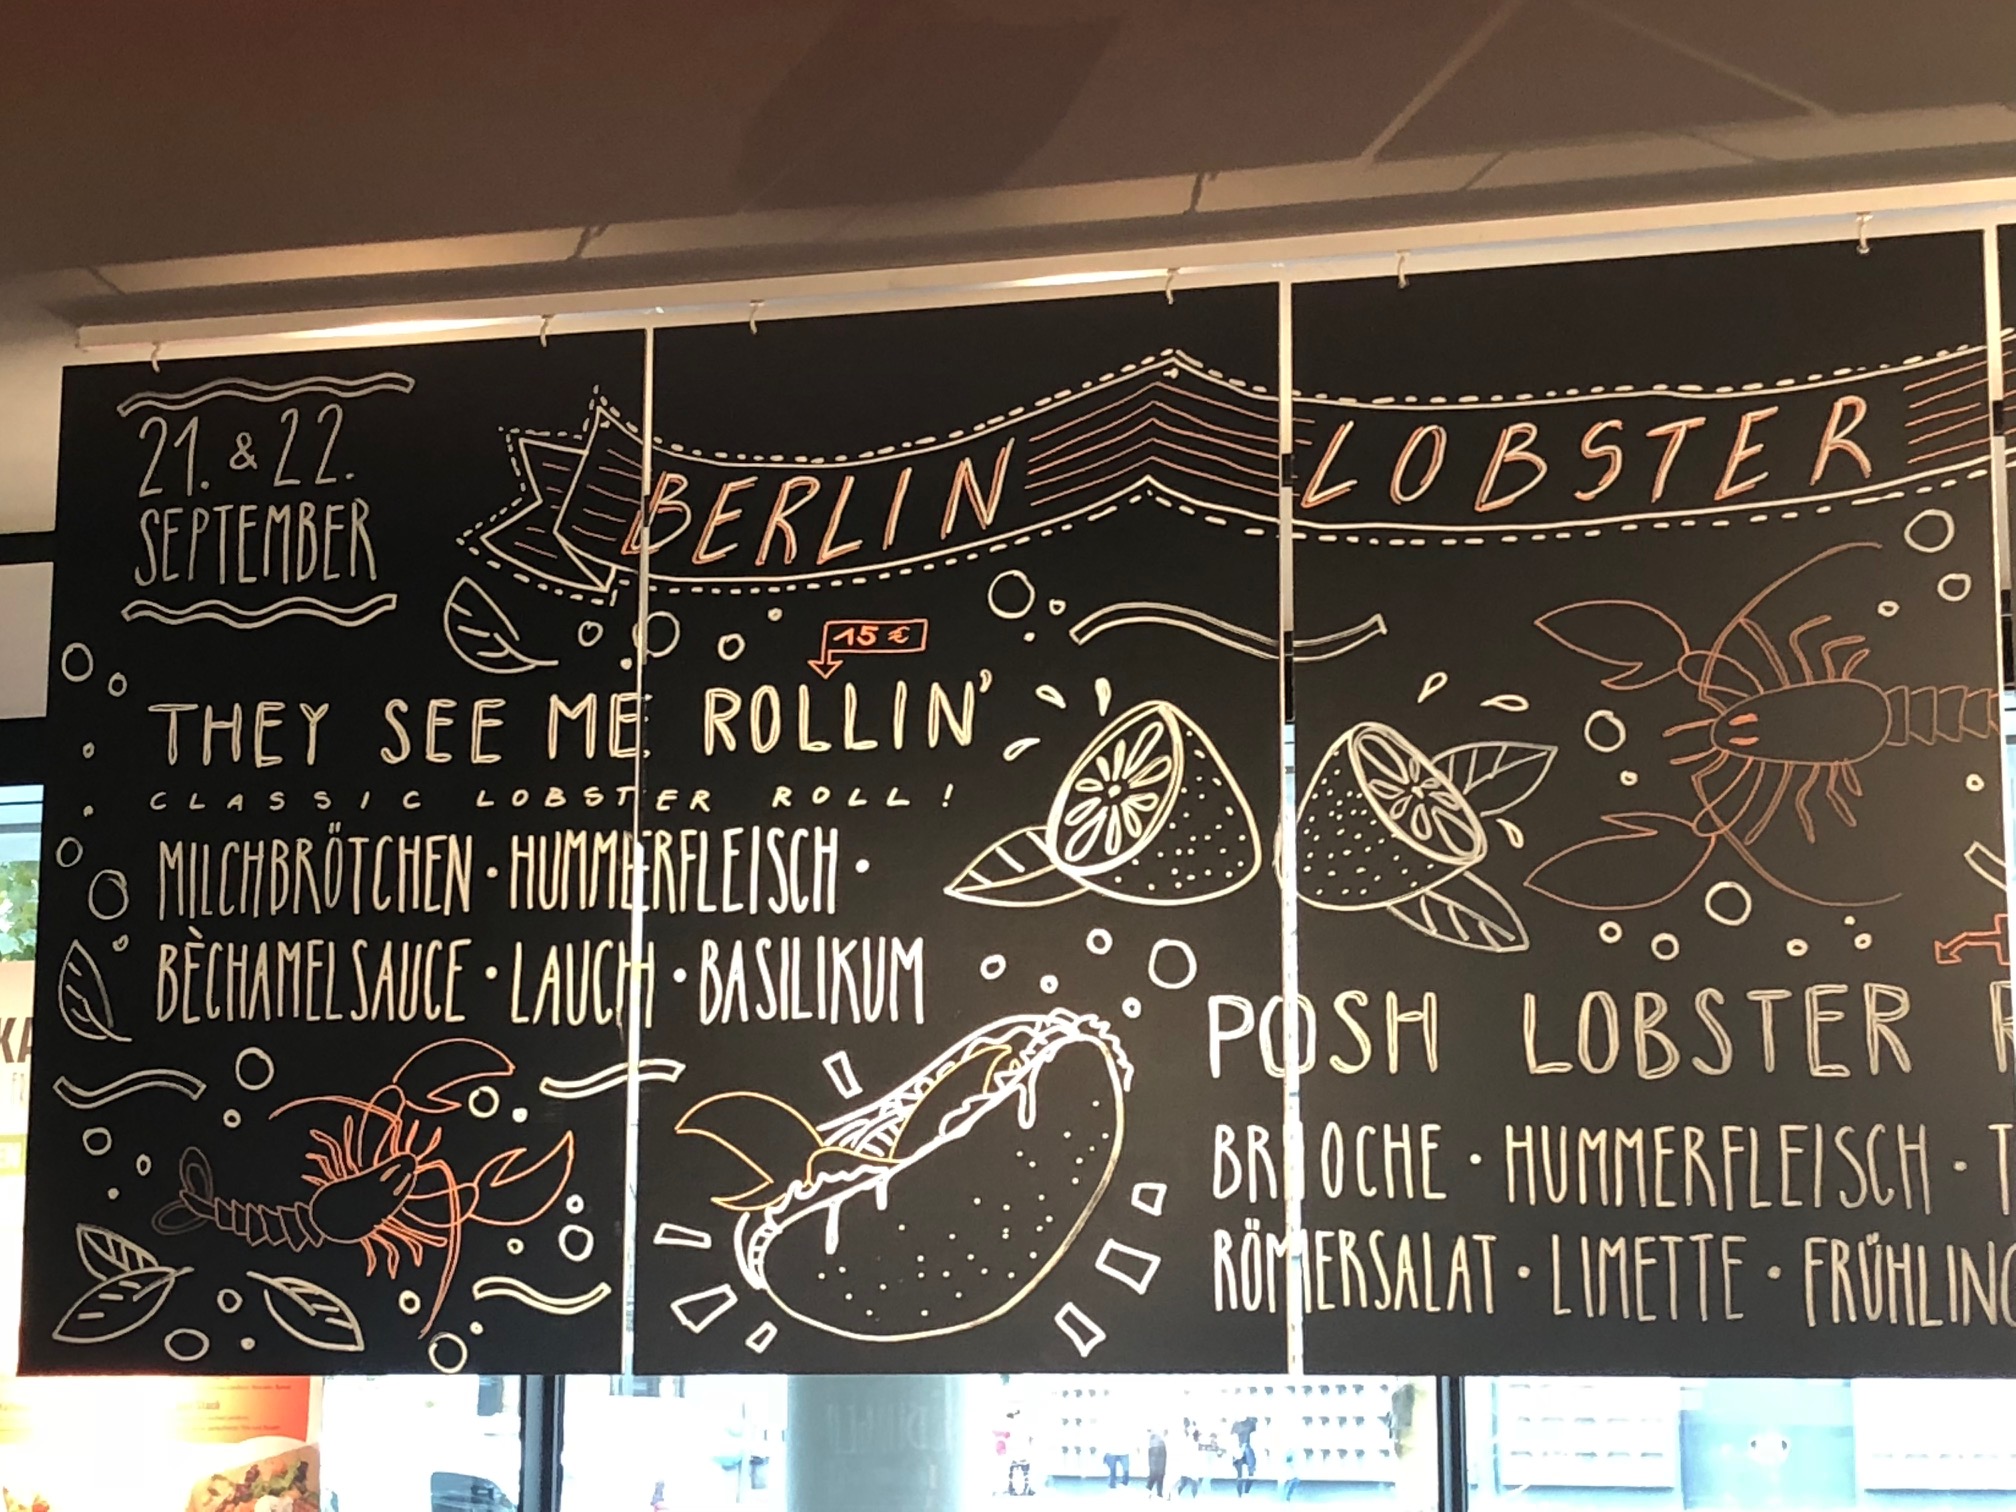 21. & 22.
SEPTEMBER
BERLIN LOBSTER
15 €
THEY SEE ME ROLLIN'
CLASSIC LOBSTER ROLL!
MILCHBRÖTCHEN · HUMMERFLEISCH ·
BÈCHAMELSAUCE · LAUCH · BASILIKUM
POSH LOBSTER
BRIOCHE · HUMMERFLEISCH ·
RÖMERSALAT · LIMETTE · FRÜHLING